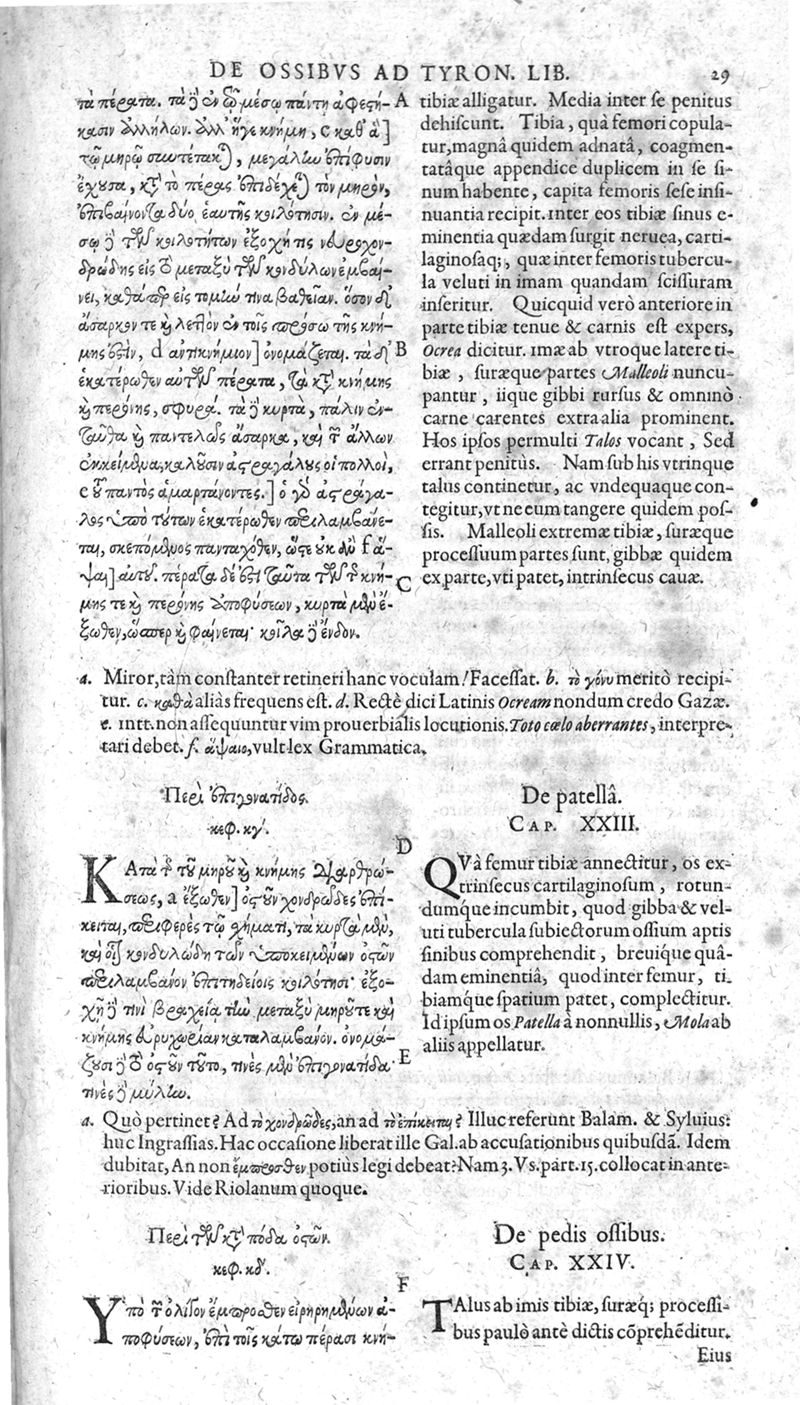 DE OSSIBVS AD TYRON. LIB. 29
τὰ πέρατα. τὰ δὲ ἐν τῷ μέσῳ πάντη ἀφεστή-
κασιν ἀλλήλων. ἀλλ' ἥγε κνήμη, c καθ' ἃ]
τῷ μηρῷ συντέτακται, μεγάλην ἐπίφυσιν
ἔχουσα, κατὰ τὸ πέρας ἐπιδέχεται τὸν μηρὸν,
ἐπιβαίνοντα δύο ἑαυτῆς κοιλότησιν. ἐν μέ-
σῳ δὲ τῶν κοιλοτήτων ἐξοχή τις νευροχον-
δρώδης εἰς τὸ μεταξὺ τῶν κονδύλων ἐμβαί-
νει, καθάπερ εἰς τομήν τινα βαθεῖαν. ὅσον δὲ
ἄσαρκόν τε καὶ λεπτὸν ἐν τοῖς πρόσω τῆς κνή-
μης ἐστὶν, d ἀντικνήμιον] ὀνομάζεται. τὰ δὲ
ἑκατέρωθεν αὐτῶν πέρατα, τὰ κατὰ κνήμης
καὶ περόνης, σφυρά. τὰ δὲ κυρτὰ, πάλιν ἐν-
ταῦθα καὶ παντελῶς ἄσαρκα, καὶ τῶν ἄλλων
ἐκκείμενα, καλοῦσιν ἀστραγάλους οἱ πολλοὶ,
e τοῦ παντὸς ἁμαρτάνοντες.] ὁ γὰρ ἀστράγα-
λος ὑπὸ τούτων ἑκατέρωθεν περιλαμβάνε-
ται, σκεπόμενος πανταχόθεν, ὥστε οὐκ ἂν f ἅ-
ψαι] αὐτοῦ. πέρατα δέ ἐστι ταῦτα τῶν τῆς κνή-
μης τε καὶ περόνης ἀποφύσεων, κυρτὰ μὲν ἔ-
ξωθεν, ὥσπερ καὶ φαίνεται· κοῖλα δὲ ἔνδον.
A
B
C
tibiæ alligatur. Media inter se penitus
dehiscunt. Tibia, quà femori copula-
tur, magnâ quidem adnatâ, coagmen-
tatâque appendice duplicem in se si-
num habente, capita femoris sese insi-
nuantia recipit. inter eos tibiæ sinus e-
minentia quædam surgit neruea, carti-
laginosaq;, quæ inter femoris tubercu-
la veluti in imam quandam scissuram
inseritur. Quicquid verò anteriore in
parte tibiæ tenue & carnis est expers,
Ocrea dicitur. imæ ab vtroque latere ti-
biæ, suræque partes Malleoli nuncu-
pantur, iique gibbi rursus & omninò
carne carentes extra alia prominent.
Hos ipsos permulti Talos vocant, Sed
errant penitùs. Nam sub his vtrinque
talus continetur, ac vndequaque con-
tegitur, vt ne eum tangere quidem pos-
sis. Malleoli extremæ tibiæ, suræque
processuum partes sunt, gibbæ quidem
ex parte, vti patet, intrinsecus cauæ.
a. Miror, tàm constanter retineri hanc voculam! Facessat. b. τὸ γόνυ meritò recipi-
tur. c. καθὰ aliàs frequens est. d. Rectè dici Latinis Ocream nondum credo Gazæ.
e. intt. non assequuntur vim prouerbialis locutionis. Toto cœlo aberrantes, interpre-
tari debet. f. ἅψαιο, vult lex Grammatica.
Περὶ ἐπιγονατίδος.
κεφ. κγʹ.
D
ΚΑτὰ τὴν τοῦ μηροῦ καὶ κνήμης διάρθρω-
σεως, a ἔξωθεν] ὀστοῦν χονδρῶδες ἐπί-
κειται, περιφερὲς τῷ σχήματι, τὰ κυρτὰ μὲν,
καὶ οἷον κονδυλώδη τῶν ὑποκειμένων ὀστῶν
περιλαμβάνον ἐπιτηδείοις κοιλότησι· ἐξο-
χῇ δέ τινι βραχείᾳ τὴν μεταξὺ μηροῦ τε καὶ
κνήμης εὐρυχωρίαν καταλαμβάνον. ὀνομά-
ζουσι δὲ τὸ ὀστοῦν τοῦτο, τινὲς μὲν ἐπιγονατίδα·
τινὲς δὲ μύλην.
E
De patellâ.
CAP. XXIII.
QVà femur tibiæ annectitur, os ex-
trinsecus cartilaginosum, rotun-
dumq́ue incumbit, quod gibba & vel-
uti tubercula subiectorum ossium aptis
sinibus comprehendit, breuiq́ue quâ-
dam eminentiâ, quod inter femur, ti-
biamq́ue spatium patet, complectitur.
Id ipsum os Patella à nonnullis, Mola ab
aliis appellatur.
a. Quò pertinet? Ad τὸ χονδρῶδες, an ad τὸ ἐπίκειται? Illuc referunt Balam. & Syluius:
huc Ingrassias. Hac occasione liberat ille Gal. ab accusationibus quibusdā. Idem
dubitat, An non ἔμπροσθεν potiùs legi debeat? Nam 3. Vs. part. 15. collocat in ante-
rioribus. Vide Riolanum quoque.
Περὶ τῶν κατὰ πόδα ὀστῶν.
κεφ. κδʹ.
F
ΥΠὸ τῶν ὀλίγον ἔμπροσθεν εἰρημένων ἀ-
ποφύσεων, ἐπὶ τοῖς κάτω πέρασι κνή-
De pedis ossibus.
CAP. XXIV.
TAlus ab imis tibiæ, suræq; processi-
bus paulò antè dictis cōprehēditur.
Eius